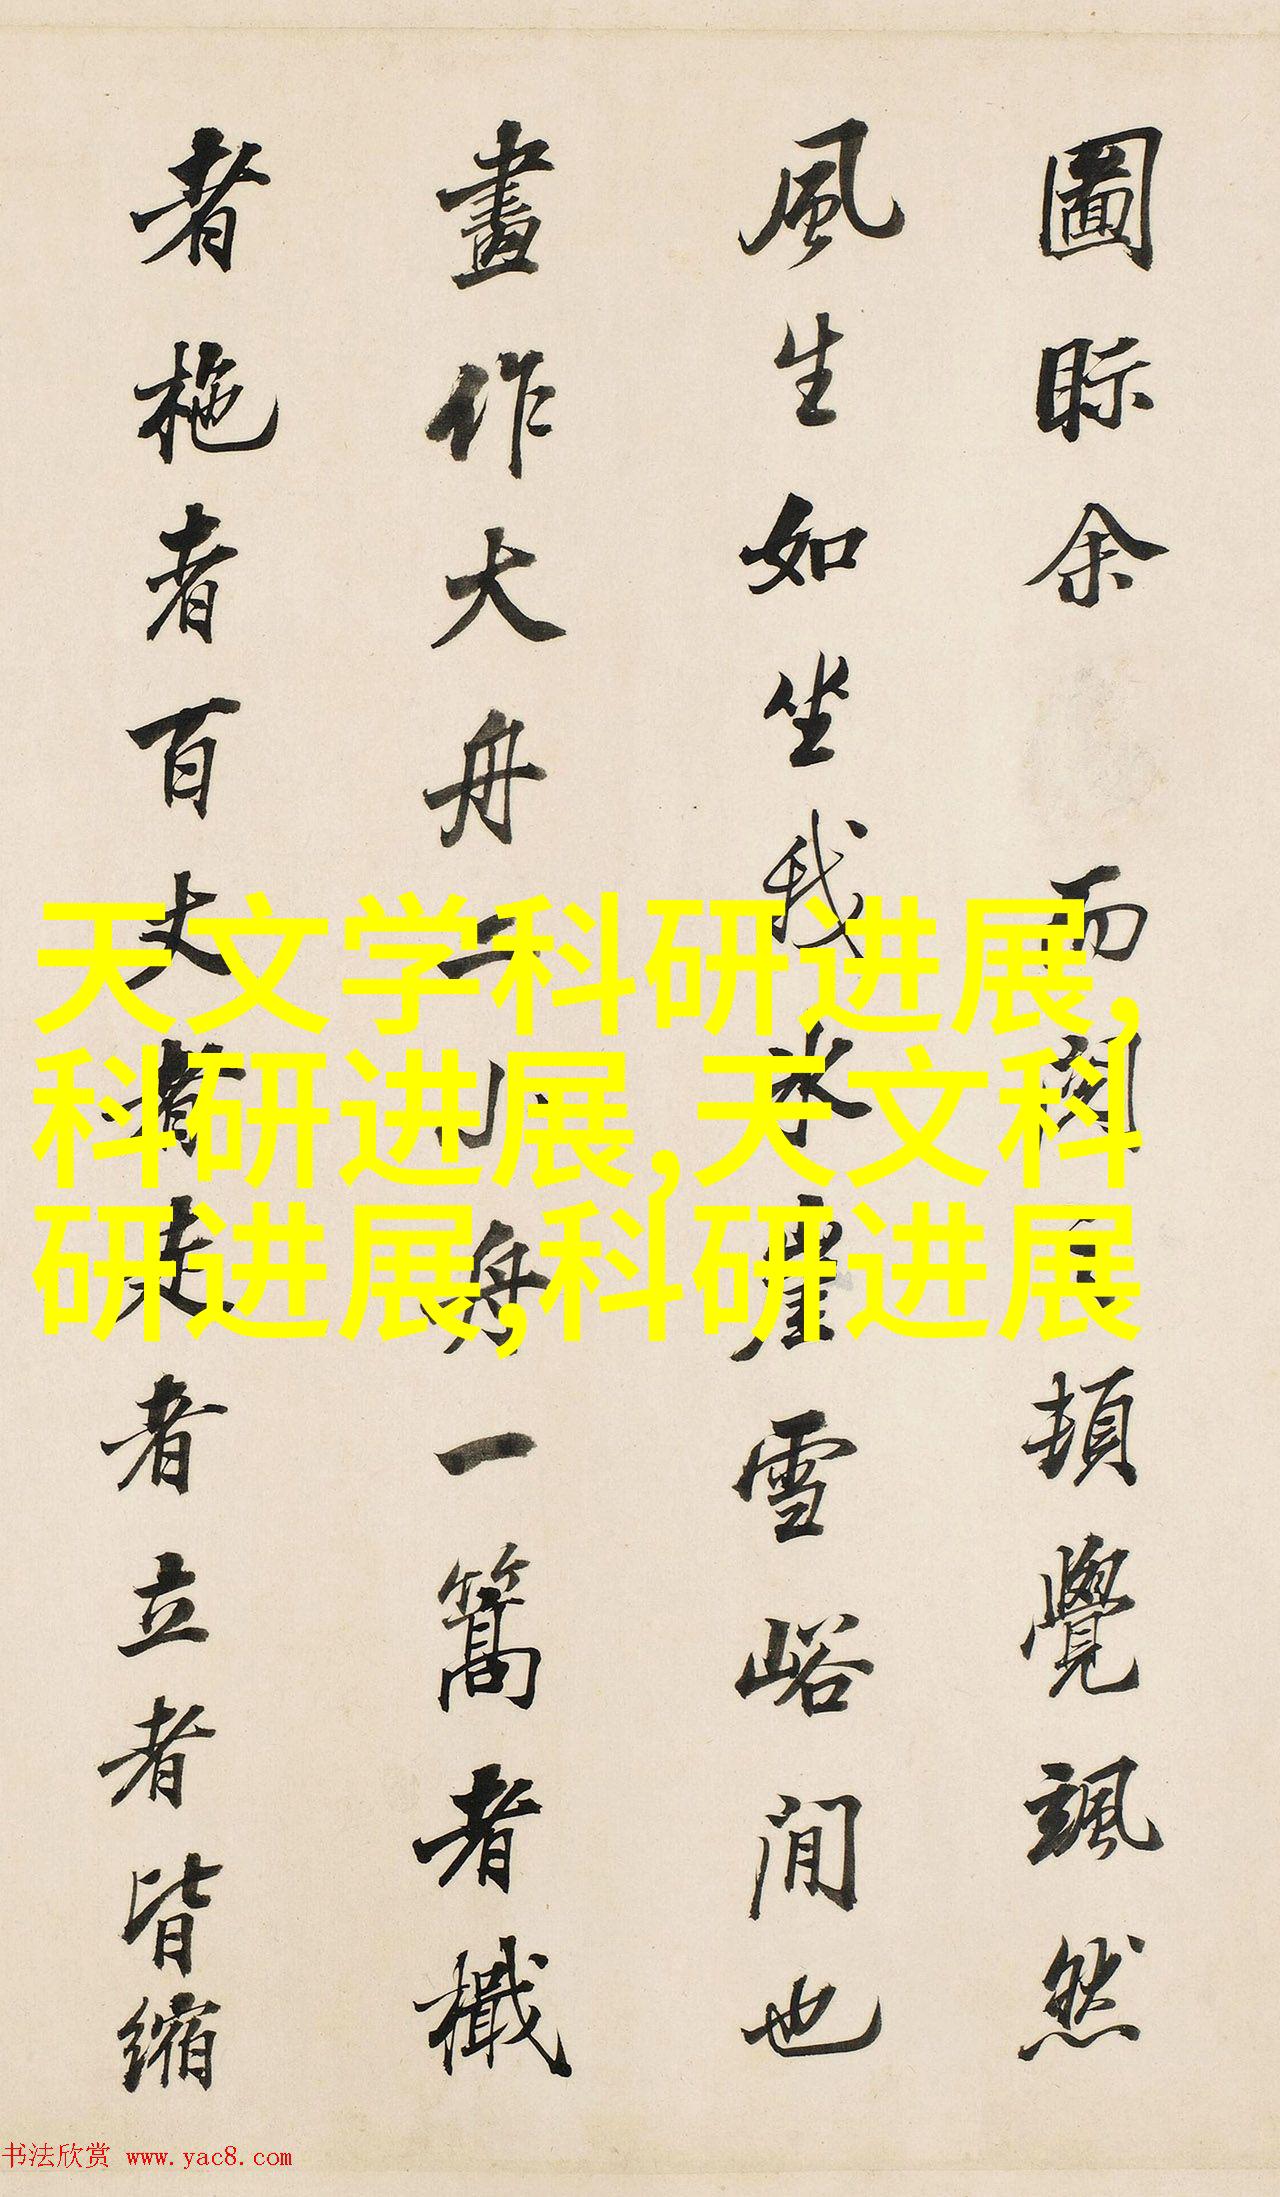 圖眎余 而閱之頓覺颯然
風生如坐我冰崖雪峪間也
畫作大舟二小舟一篙者檝
者柂者百丈者走者立者皆縮
天文学科研进展,
科研进展,天文科
研进展,科研进展
书法欣赏 www.yac8.com